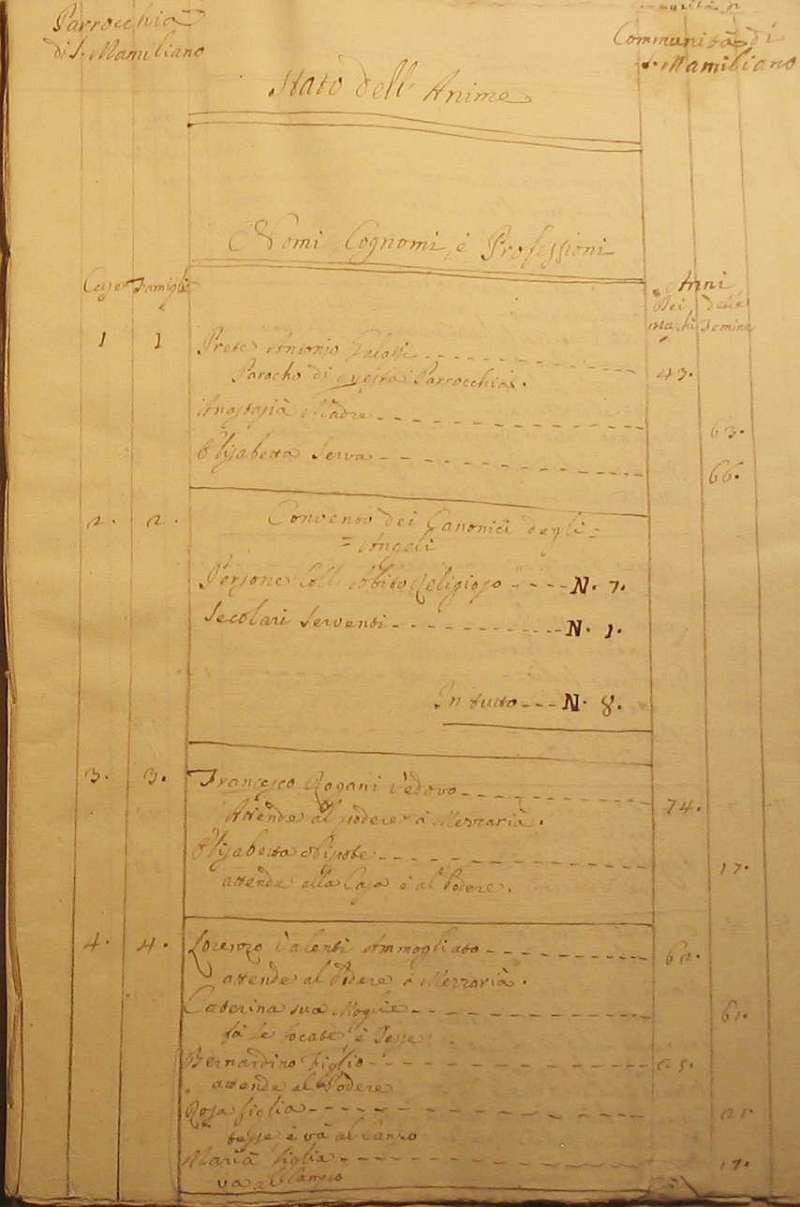 Parrocchia
di S. Mamiliano
Communità di
S. Mamiliano
Stato dell'Anime
Nomi Cognomi, è Professioni
Case Famiglie
Anni
Dei delle
Maschi Femine
1 1 Prete Antonio Galassi
Parocho di questa Parrocchia. 43.
Anastasia Madre 63.
Elisabetta Serva 66.
2. 2. Convento dei Canonici degli =
= Angeli
Persone Coll' Abito Religioso N. 7.
Secolari Serventi N. 1.
In tutto N. 8.
3. 3. Francesco Rogani Vedovo 74.
Attende al podere à Mezzarià.
Elisabetta Nipote 17.
attende alla Casa è al Podere.
4. 4. Lorenzo Valenti Ammogliato
attende al Podere à Mezzarià.
Caterina sua Moglie 61.
fà le è Tesse
Bernardino figlio 25.
attende al Podere
Rosa figlia 21.
tesse è và al Campo
Maria figlia 17.
va al Campo